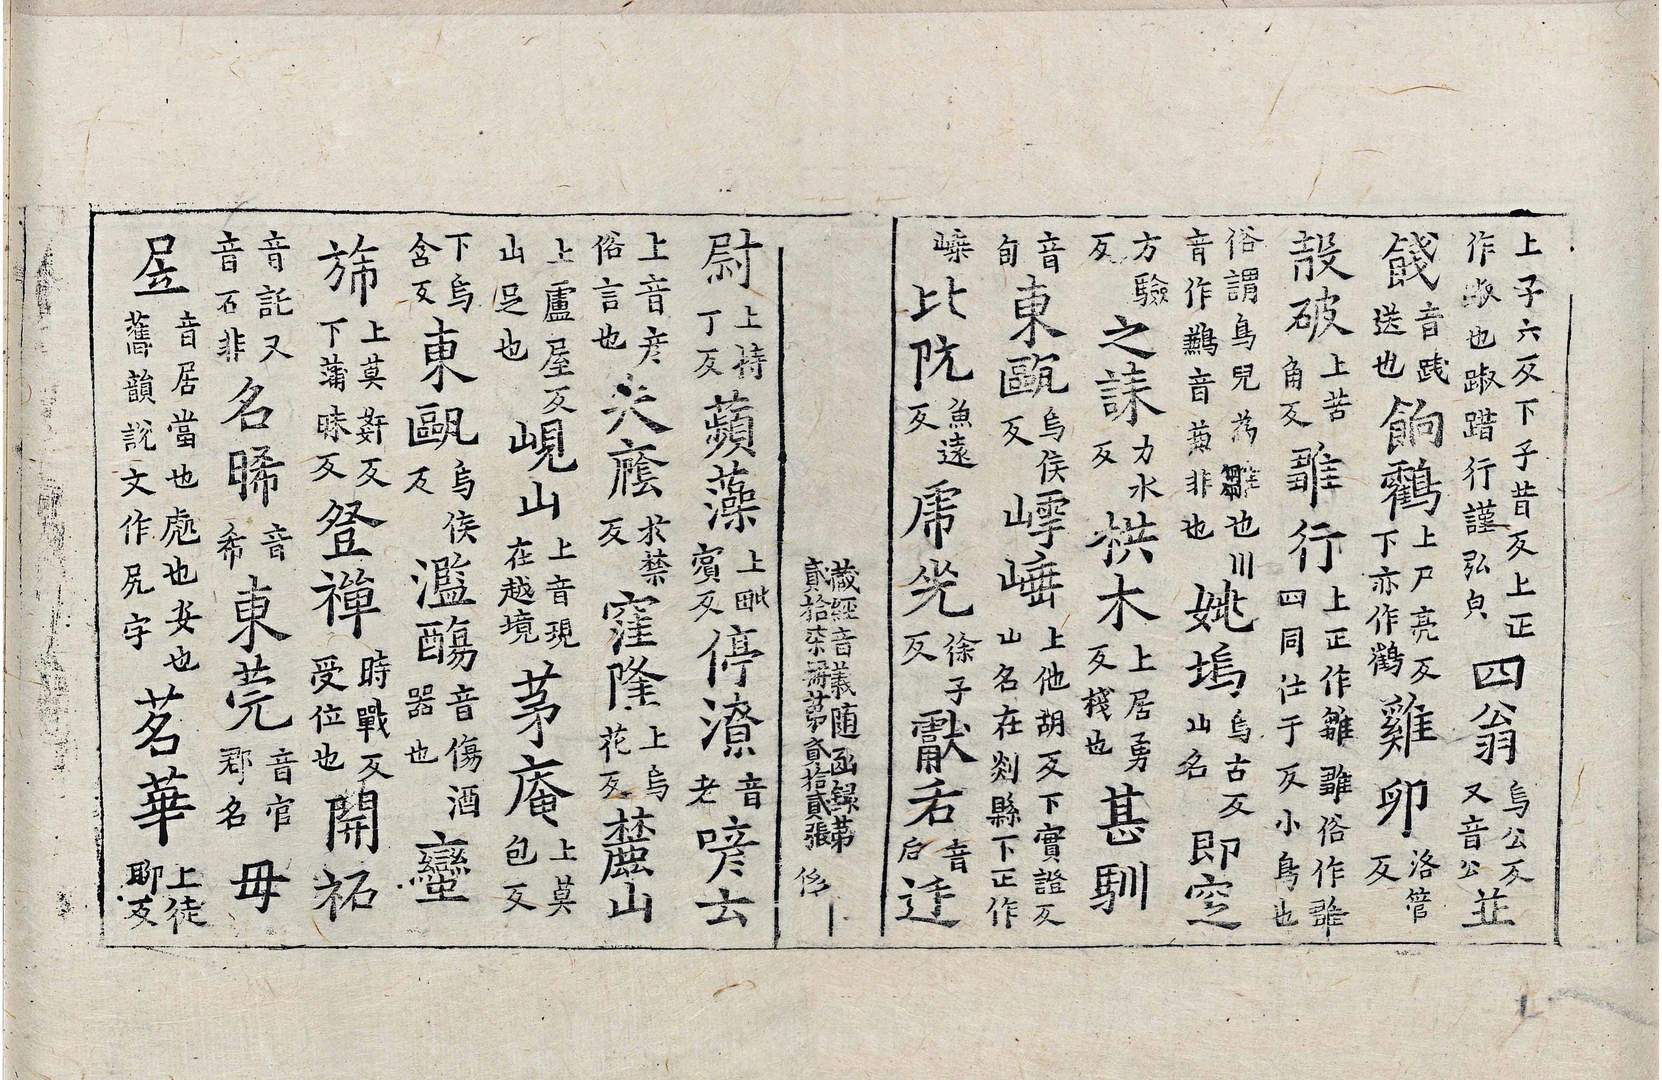 上子六反下子昔反上正作踧也踧踖行謹弘皃四翁烏公反又音公並
餞音踐送也餉鸖上尸亮反下亦作鶴雞卵洛管反
㱿破上苦角反雖行上正作雛雖俗作雖四同仕于反小鳥也
俗謂鳥兒為雛也川音作鷜音蒭非也姚塢烏古反山名即窆
方驗反之誄力水反栱木上居勇反棧也甚馴
音旬東甌烏侯反㟐嵊上他胡反下實證反山名在剡縣下正作
嵊比阮魚遠反席㘴徐子反㱃舌音后迋
藏經音義隨函錄第貳拾柒冊第貳拾貳張
尉上持丁反蘋藻上毗賓反停潦音老喭去
上音彦俗言也尖廕求禁反窪隆上烏花反麓山
上盧屋反山足也峴山上音現在越境茅庵上莫包反
下烏含反東甌烏侯反濫觴音傷酒器也蠻
旆上莫姧反下蒲昧反登禪時戰反受位也開祏
音託又音石非名晞音希東莞音官郡名毋
𡱈音居當也處也安也舊韻說文作凥字茗華上徒聊反